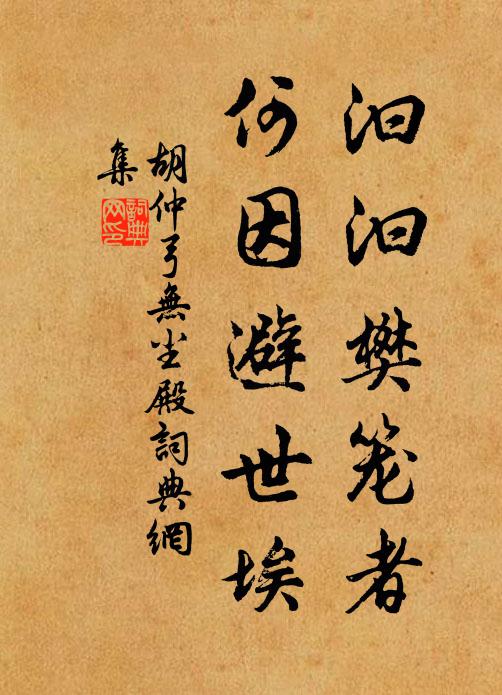 汩汩樊笼者
何因避世埃
胡仲弓無尘殿詞典網
集
詞典网印